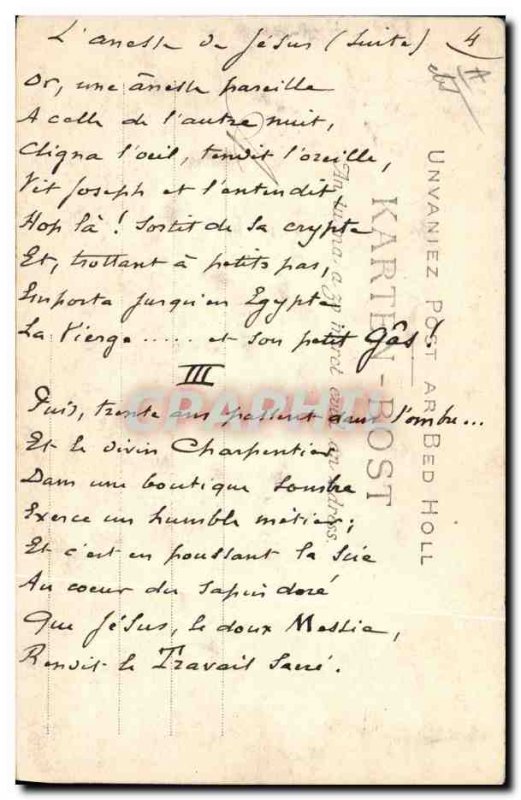 L'anesse de Jésus (suite) 4
Or, une ânesse pareille
A celle de l'autre nuit,
Cligna l'oeil, tendit l'oreille,
Vit Joseph et l'entendit
Hop là ! Sortit de sa crypte
Et, trottant à petits pas,
Emporta jusqu'en Egypte
La Vierge ..... et son petit Gâs !
III
Puis, trente ans passent dans l'ombre...
Et le divin Charpentier
Dans une boutique sombre
Exerce un humble métier ;
Et c'est en poussant la scie
Au coeur du sapin doré
Que Jésus, le doux Messie,
Rendit le Travail sacré.
UNVANIEZ POST AR BED HOLL
KARTEN-POST
CPARAMA